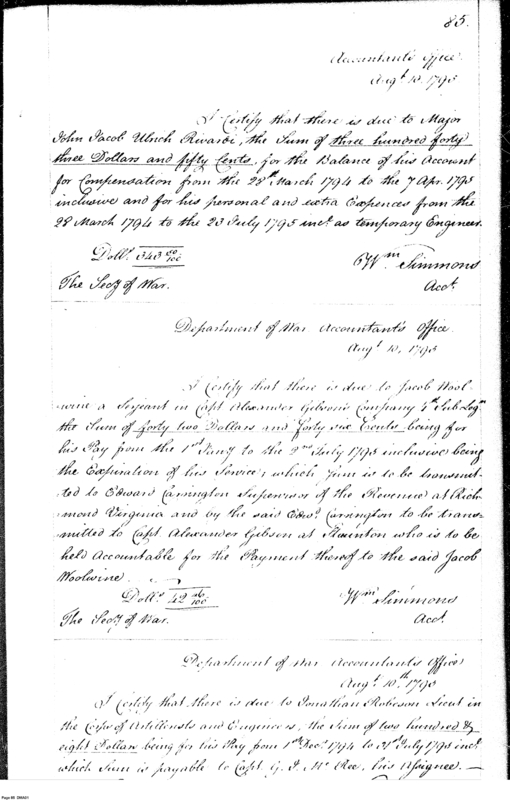 85.
Accountant's Office.
Augt. 10. 1795
I Certify that there is due to Major
John Jacob Ulrich Rivardi, the Sum of three hundred forty
three Dollars and fifty Cents, for the Balance of his Account
for Compensation from the 28th March 1794 to the 7 Apr. 1795
inclusive and for his personal and extra Expences from the
28 March 1794 to the 23 July 1795 inct. as temporary Engineer.
Dolls. 343 50/100
Wm. Simmons
The Secy of War.
Acct.
Department of War Accountant's Office
Augt 10, 1795
I Certify that there is due to Jacob Wool-
wine a Serjeant in Capt Alexander Gibson's Company 4th Sub Legn
the Sum of forty two Dollars and forty six Cents being for
his Pay from the 1st Jany to the 2nd July 1795 inclusive being
the Expiration of his Service; which Sum is to be transmit-
ted to Edward Carrington Supervisor of the Revenue at Rich-
mond Virginia and by the said Edwd. Carrington to be trans-
mitted to Capt. Alexander Gibson at Staunton who is to be
held Accountable for the Payment thereof to the said Jacob
Woolwine.
Dolls 42 46/100
Wm Simmons
The Secy of War.
Acct.
Department of War Accountants Office
Augt. 10th. 1795
I Certify that there is due to Jonathan Roberson Lieut in
the Corps of Artillerists and Engineers, the Sum of two hundred &
eight Dollars being for his Pay from 1st Decr. 1794 to 31st July 1795 inct.
which Sum is payable to Capt. G. J. Mc Ree, his Assignee.
Page 85 DMA01